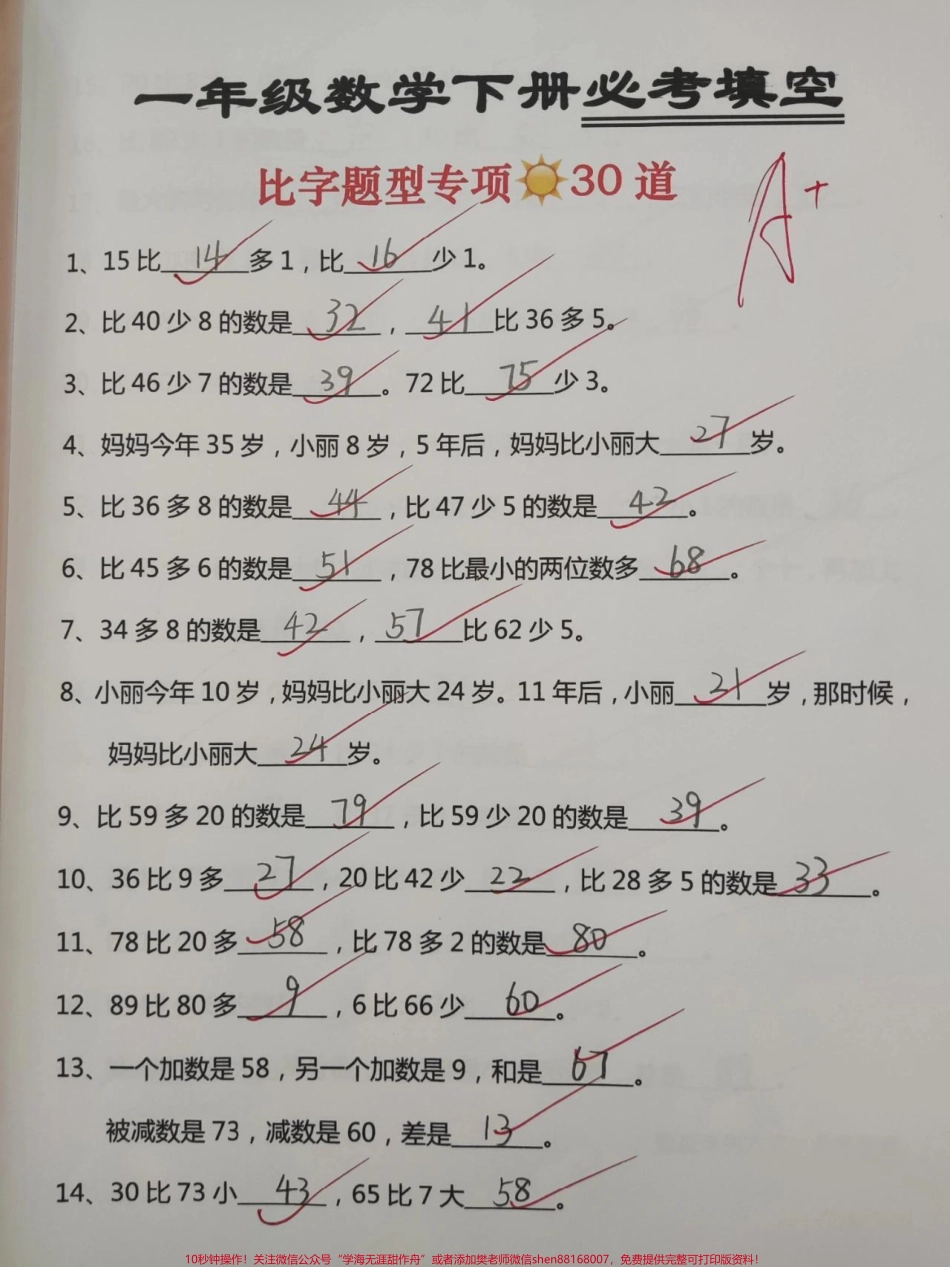 一年级数学下册必考填空
比字题型专项☀30 道
A+
1、15比 14 多1，比 16 少1。
2、比 40 少 8 的数是 32 ， 41 比 36 多 5。
3、比 46 少 7 的数是 39 。72 比 75 少 3。
4、妈妈今年 35 岁，小丽 8 岁，5 年后，妈妈比小丽大 27 岁。
5、比 36 多 8 的数是 44 ，比 47 少 5 的数是 42 。
6、比 45 多 6 的数是 51 ，78 比最小的两位数多 68 。
7、34 多 8 的数是 42 ， 57 比 62 少 5。
8、小丽今年 10 岁，妈妈比小丽大 24 岁。11 年后，小丽 21 岁，那时候，
妈妈比小丽大 24 岁。
9、比 59 多 20 的数是 79 ，比 59 少 20 的数是 39 。
10、36 比 9 多 27 ，20 比 42 少 22 ，比 28 多 5 的数是 33 。
11、78 比 20 多 58 ，比 78 多 2 的数是 80 。
12、89 比 80 多 9 ，6 比 66 少 60 。
13、一个加数是 58，另一个加数是 9，和是 67 。
被减数是 73，减数是 60，差是 13 。
14、30 比 73 小 43 ，65 比 7 大 58 。
10秒钟操作！关注微信公众号“学海无涯甜作舟”或者添加樊老师微信shen88168007，免费提供完整可打印版资料！